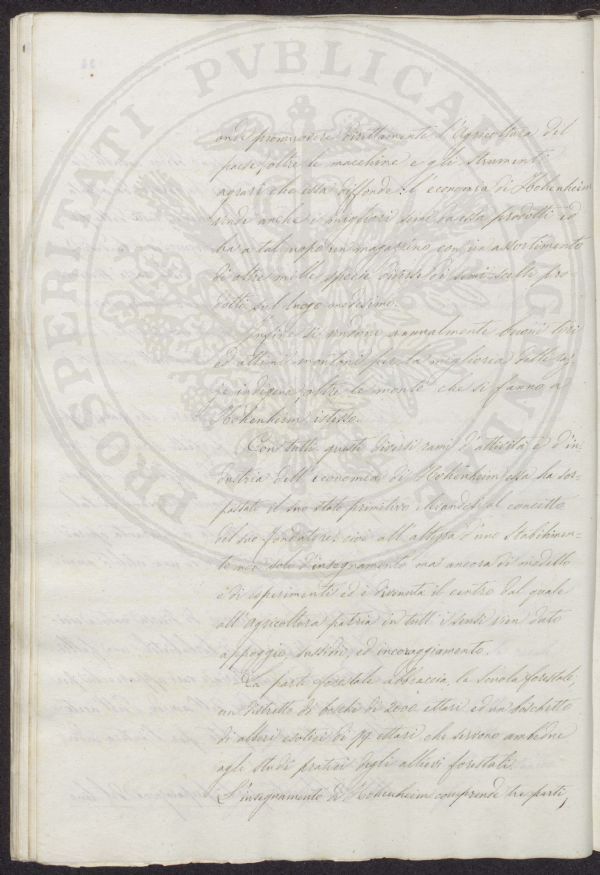 onde promuovere direttamente l'Agricoltura del
paese, oltre le macchine e gli strumenti
agrari che essa diffonde: l'economia di Hohenheim
vende anche i migliori semi da essa prodotti ed
ha a tal uopo un magazzino con un assortimento
di oltre mille specie diverse di semi scelti pro-
dotti sul luogo medesimo.
Infine si vendono annualmente buoni tori
ed ottimi montoni per la miglioria delle raz-
ze indigene, oltre le monte che si fanno a
Hohenheim istesso.
Con tutti questi diversi rami d'attività e d'in-
dustria dell'economia di Hohenheim essa ha sor-
passato il suo stato primitivo alzandosi al concetto
del suo fondatore, cioè all'altezza d'uno Stabilimen-
to non solo d'insegnamento ma ancora di modello
e di esperimenti ed è divenuta il centro dal quale
all'agricoltura patria in tutti i sensi vien dato
appoggio, sussidi, ed incoraggiamento.
La parte forestale abbraccia la scuola forestale,
un distretto di boschi di 2000 ettari ed un boschetto
di alberi esotici di 99 ettari che servono ambedue
agli studi pratici degli allievi forestali.
L'insegnamento di Hohenheim comprende tre parti,
PROSPERITATI PVBLICAE AVGENDAE